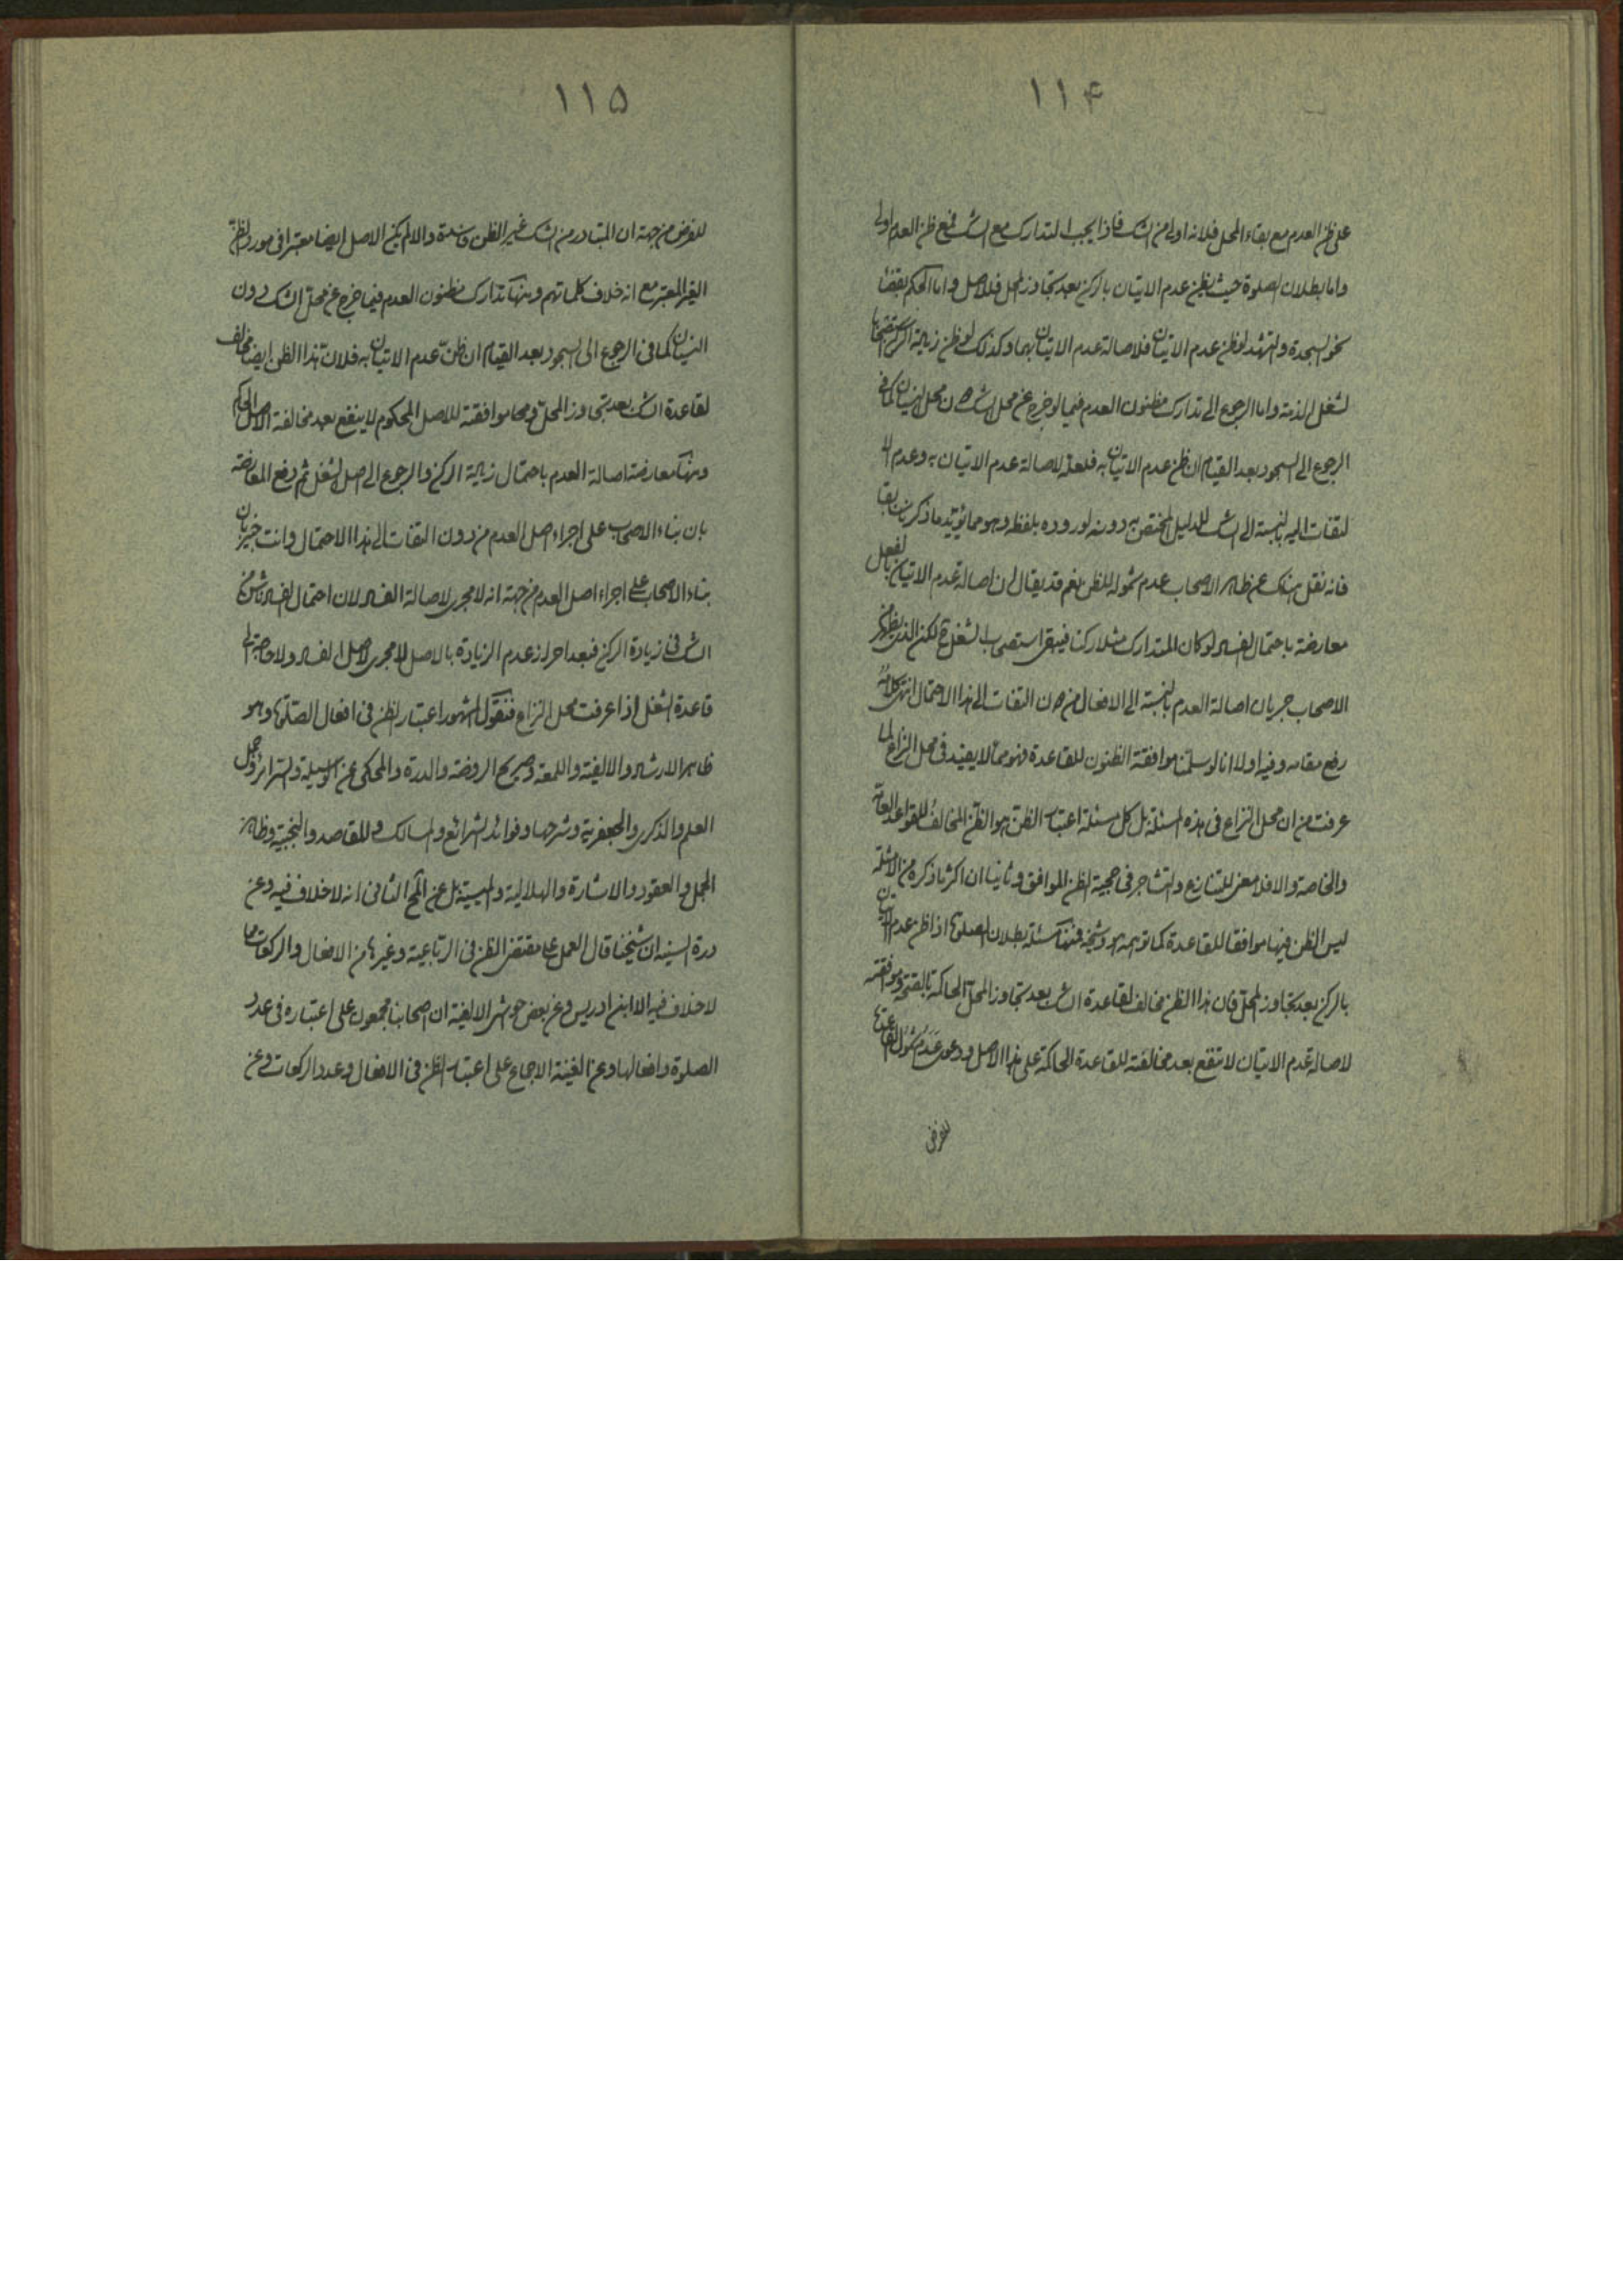 ١١۴
على ظن العدم مع بقاء المحل فلانه اولى من الشك فاذا يجب التدارك مع الشك فمع ظن العدم اولى
واما بطلان الصلوة حيث يظن عدم الاتيان بالركن بعد تجاوز المحل فلاصل واما الحكم بقضاء
نحو السجدة والتشهد لو ظن عدم الاتيان فلاصالة عدم الاتيان بهما وكذلك لو ظن زيادة الركن استصحابا
لشغل الذمة واما الرجوع الى تدارك مظنون العدم فيما لو خرج عن محل الشك دون محل النسيان كما في
الرجوع الى السجود بعد القيام ان ظن عدم الاتيان به فلعله لاصالة عدم الاتيان به وعدم ا
لتفات اليه بالنسبة الى الشك للدليل المختص به دونه لوروده بلفظه وهو مما يؤيد ما ذكر سابقا
فانه نقل هناك عن ظاهر الاصحاب عدم شموله للظن نعم قد يقال ان اصالة عدم الاتيان بالفعل
معارضة باحتمال الفساد لو كان المتدارك مثلا ركنا فيبقى استصحاب الشغل ح لكن الذي يظهر من
الاصحاب جريان اصالة العدم بالنسبة الى الافعال من دون التفات الى هذا الاحتمال انتهى كلامه
رفع مقامه وفيه اولا انا لو سلمنا موافقة الظنون للقاعدة فهو مما لا يفيد في محل النزاع لما
عرفت من ان محل النزاع في هذه المسئلة بل كل مسئلة اعتبار الظن هو الظن المخالف للقواعد العامة
والخاصة والا فلا معنى للتنازع والتشاجر في حجية الظن الموافق وثانيا ان اكثر ما ذكره من الامثلة
ليس الظن فيها موافقا للقاعدة كما توهمه هو وشيخه فمنها مسئلة بطلان الصلوة اذا ظن عدم الاتيان
بالركن بعد تجاوز المحل فان هذا الظن مخالف لقاعدة الشك بعد تجاوز المحل الحاكمة بالصحة وموافقته
لاصالة عدم الاتيان لا تنفع بعد مخالفته للقاعدة الحاكمة على هذا الاصل ودعوى عدم شمول القاعدة
للفرض
١١۵
للفرض من جهة ان المتبادر من الشك غير الظن فاسدة والا لم يكن الاصل ايضا معتبرا في مورد الظن
الغير المعتبر مع انه خلاف كلماتهم ومنها تدارك مظنون العدم فيما خرج عن محل الشك دون
النسيان كما في الرجوع الى السجود بعد القيام ان ظن عدم الاتيان به فلان هذا الظن ايضا مخالف
لقاعدة الشك بعد تجاوز المحل ومجرد موافقته للاصل المحكوم لا ينفع بعد مخالفة الاصل الحاكم
ومنها معارضة اصالة العدم باحتمال زيادة الركن والرجوع الى اصل الشغل ثم دفع المعارضة
بان بناء الاصحاب على اجراء اصل العدم من دون التفات الى هذا الاحتمال وانت خبير بان
بناء الاصحاب على اجراء اصل العدم من جهة انه لا مجرى لاصالة الفساد لان احتمال الفساد ناش من
الشك في زيادة الركن فبعد احراز عدم الزيادة بالاصل لا مجرى لاصل الفساد ولا حاجة الى
قاعدة الشغل اذا عرفت محل النزاع فنقول المشهور اعتبار الظن في افعال الصلوة وهو
ظاهر الارشاد والالفية واللمعة وصريح الروضة والدرة والمحكى عن الوسيلة والسرائر وجمل
العلم والذكرى والجعفرية وشرحها وفوائد الشرائع والمسالك والمقاصد والنجيبية وظاهر
الجمل والعقود والاشارة والهلالية والميسية بل عن المحقق الثانى انه لا خلاف فيه وعن
درة السنية ان شيخنا قال العمل على مقتضى الظن في الرباعية وغيرها من الافعال والركعات مما
لا خلاف فيه الا ابن ادريس وعن بعض حواشى الالفية ان اصحابنا مجمعون على اعتباره في عدد
الصلوة وافعالها وعن الغنية الاجماع على اعتبار الظن في الافعال وعدد الركعات وعن